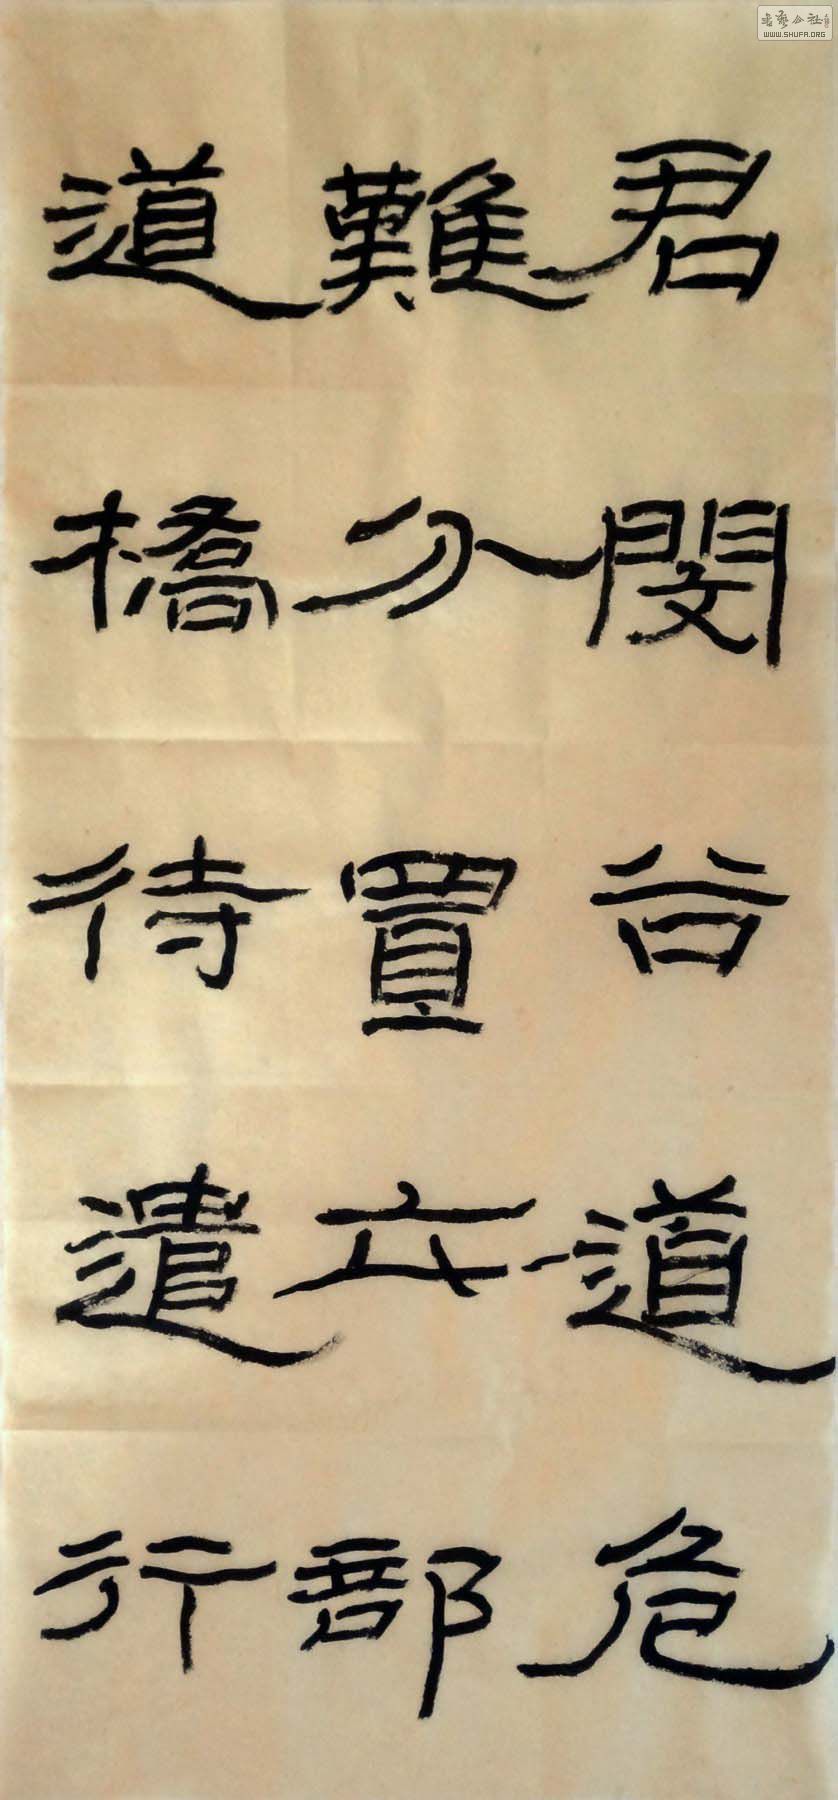 君閔谷道危
難分置六部
道橋待遣行
書藝公社
WWW.SHUFA.ORG